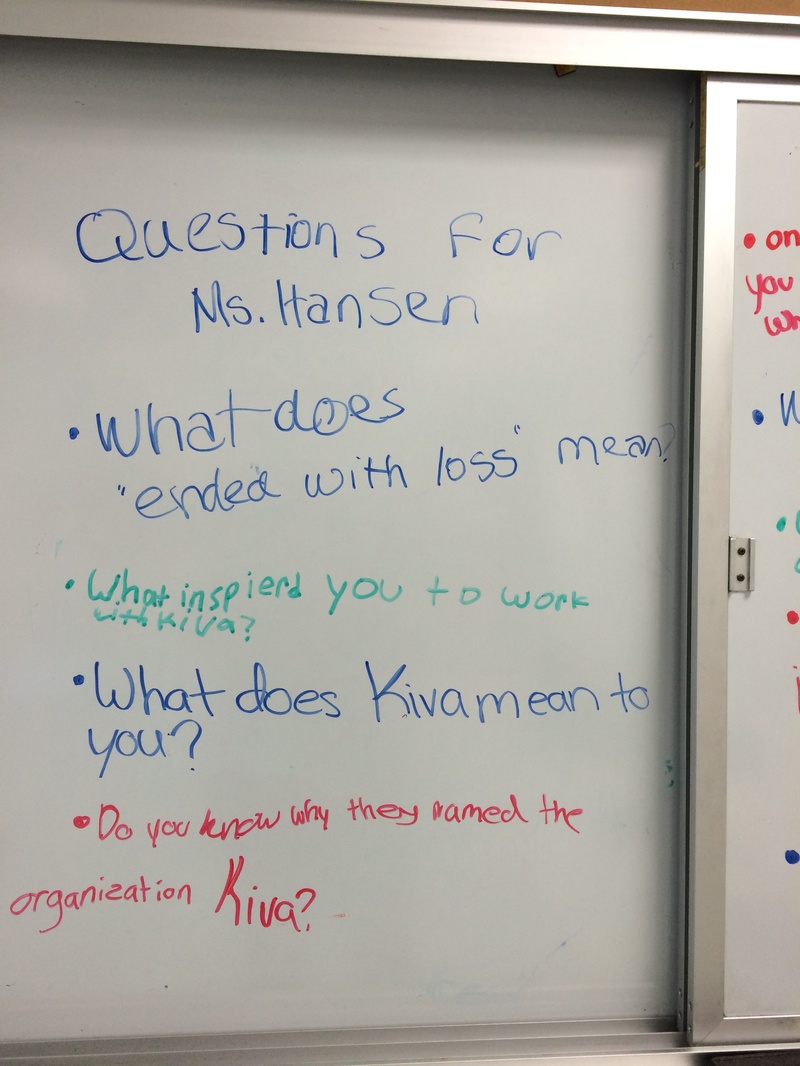 Questions for
Ms. Hansen
• What does
"ended with loss" mean?
• What inspierd you to work
with kiva?
• What does Kiva mean to
you?
• Do you know why they named the
organization Kiva?
• on
you
wh
•
•
•
•